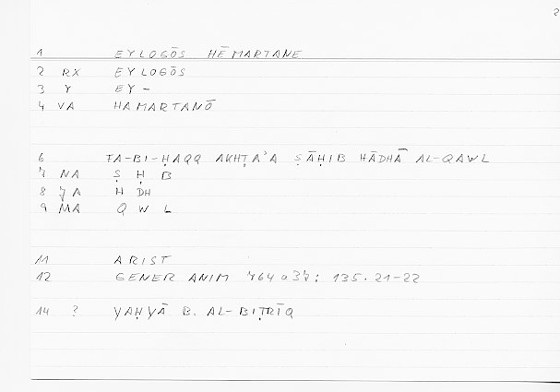 2
1 EYLOGŌS HĒMARTANE
2 RX EYLOGŌS
3 Y EY-
4 VA HAMARTANŌ
6 FA-BI-ḤAQQ AKHṬAʾA ṢĀḤIB HĀDHĀ AL-QAWL
7 NA Ṣ Ḥ B
8 YA H DH
9 MA Q W L
11 ARIST
12 GENER ANIM 764 a 37: 135.21-22
14 ? YAḤYĀ B. AL-BIṬRĪQ